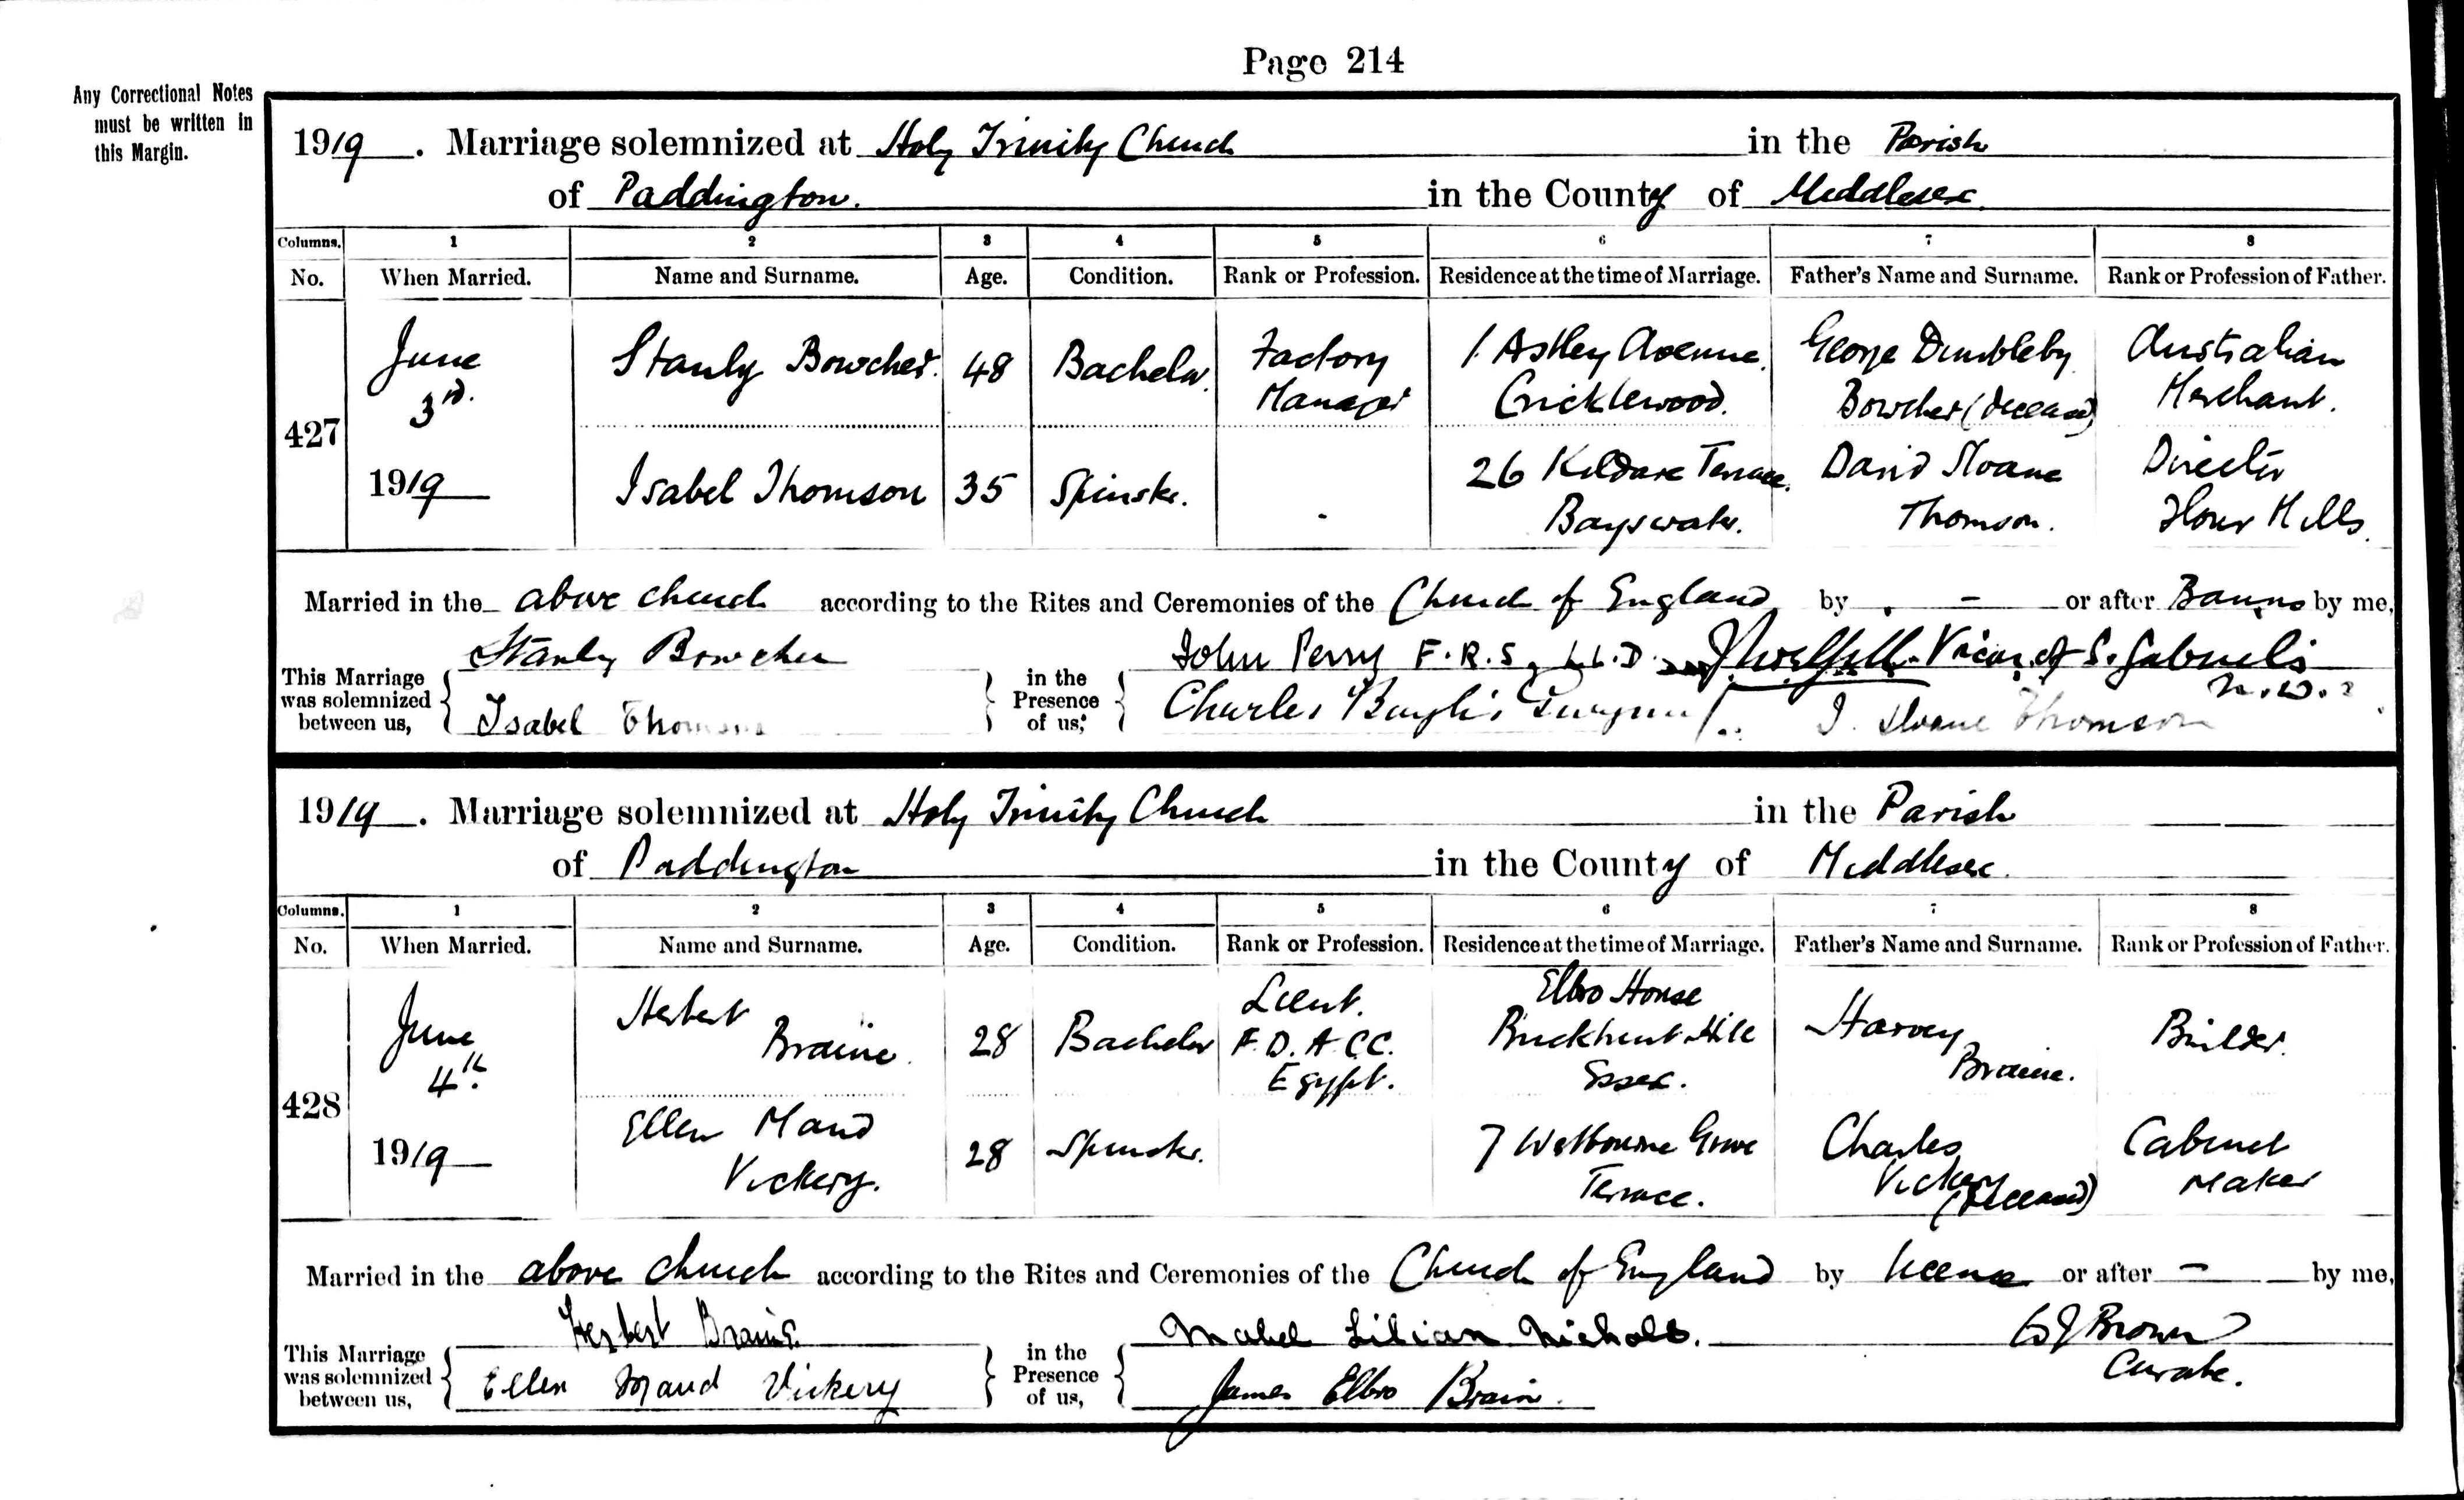 Page 214
Any Correctional Notes
must be written in
this Margin.
1919. Marriage solemnized at Holy Trinity Church in the Parish
of Paddington. in the County of Middlesex.
Columns. 1 2 3 4 5 6 7 8
No. When Married. Name and Surname. Age. Condition. Rank or Profession. Residence at the time of Marriage. Father's Name and Surname. Rank or Profession of Father.
June Stanly Bowcher. 48 Bachelor. Factory 1 Astley Avenue. George Dimbleby Australian
3rd. Manager Cricklewood. Bowcher (deceased) Merchant.
427
1919 Isabel Thomson 35 Spinster. - 26 Kildare Terrace. David Sloane Director
Bayswater. Thomson. Flour Mills.
Married in the above church according to the Rites and Ceremonies of the Church of England by - or after Banns by me,
Stanly Bowcher John Perry F.R.S, LL.D. Vicar of S. Gabriel's
This Marriage in the N.W.2
was solemnized Presence
between us, Isabel Thomson of us, Charles Baylis J. Sloane Thomson
1919. Marriage solemnized at Holy Trinity Church in the Parish
of Paddington in the County of Middlesex.
Columns. 1 2 3 4 5 6 7 8
No. When Married. Name and Surname. Age. Condition. Rank or Profession. Residence at the time of Marriage. Father's Name and Surname. Rank or Profession of Father.
June Herbert 28 Bachelor Lieut. Elbro House Harvey Builder.
4th. Braine. F.D.A.C.C. Buckhurst Hill Braine.
Egypt. Essex.
428
1919 Ellen Maud 28 Spinster. 7 Westbourne Grove Charles Cabinet
Vickery. Terrace. Vickery (deceased) Maker
Married in the above church according to the Rites and Ceremonies of the Church of England by licence or after - by me,
Herbert Braine. Mabel Lilian Nichols. Brown
This Marriage in the Curate.
was solemnized Presence
between us, Ellen Maud Vickery of us, James Elbro Brain.